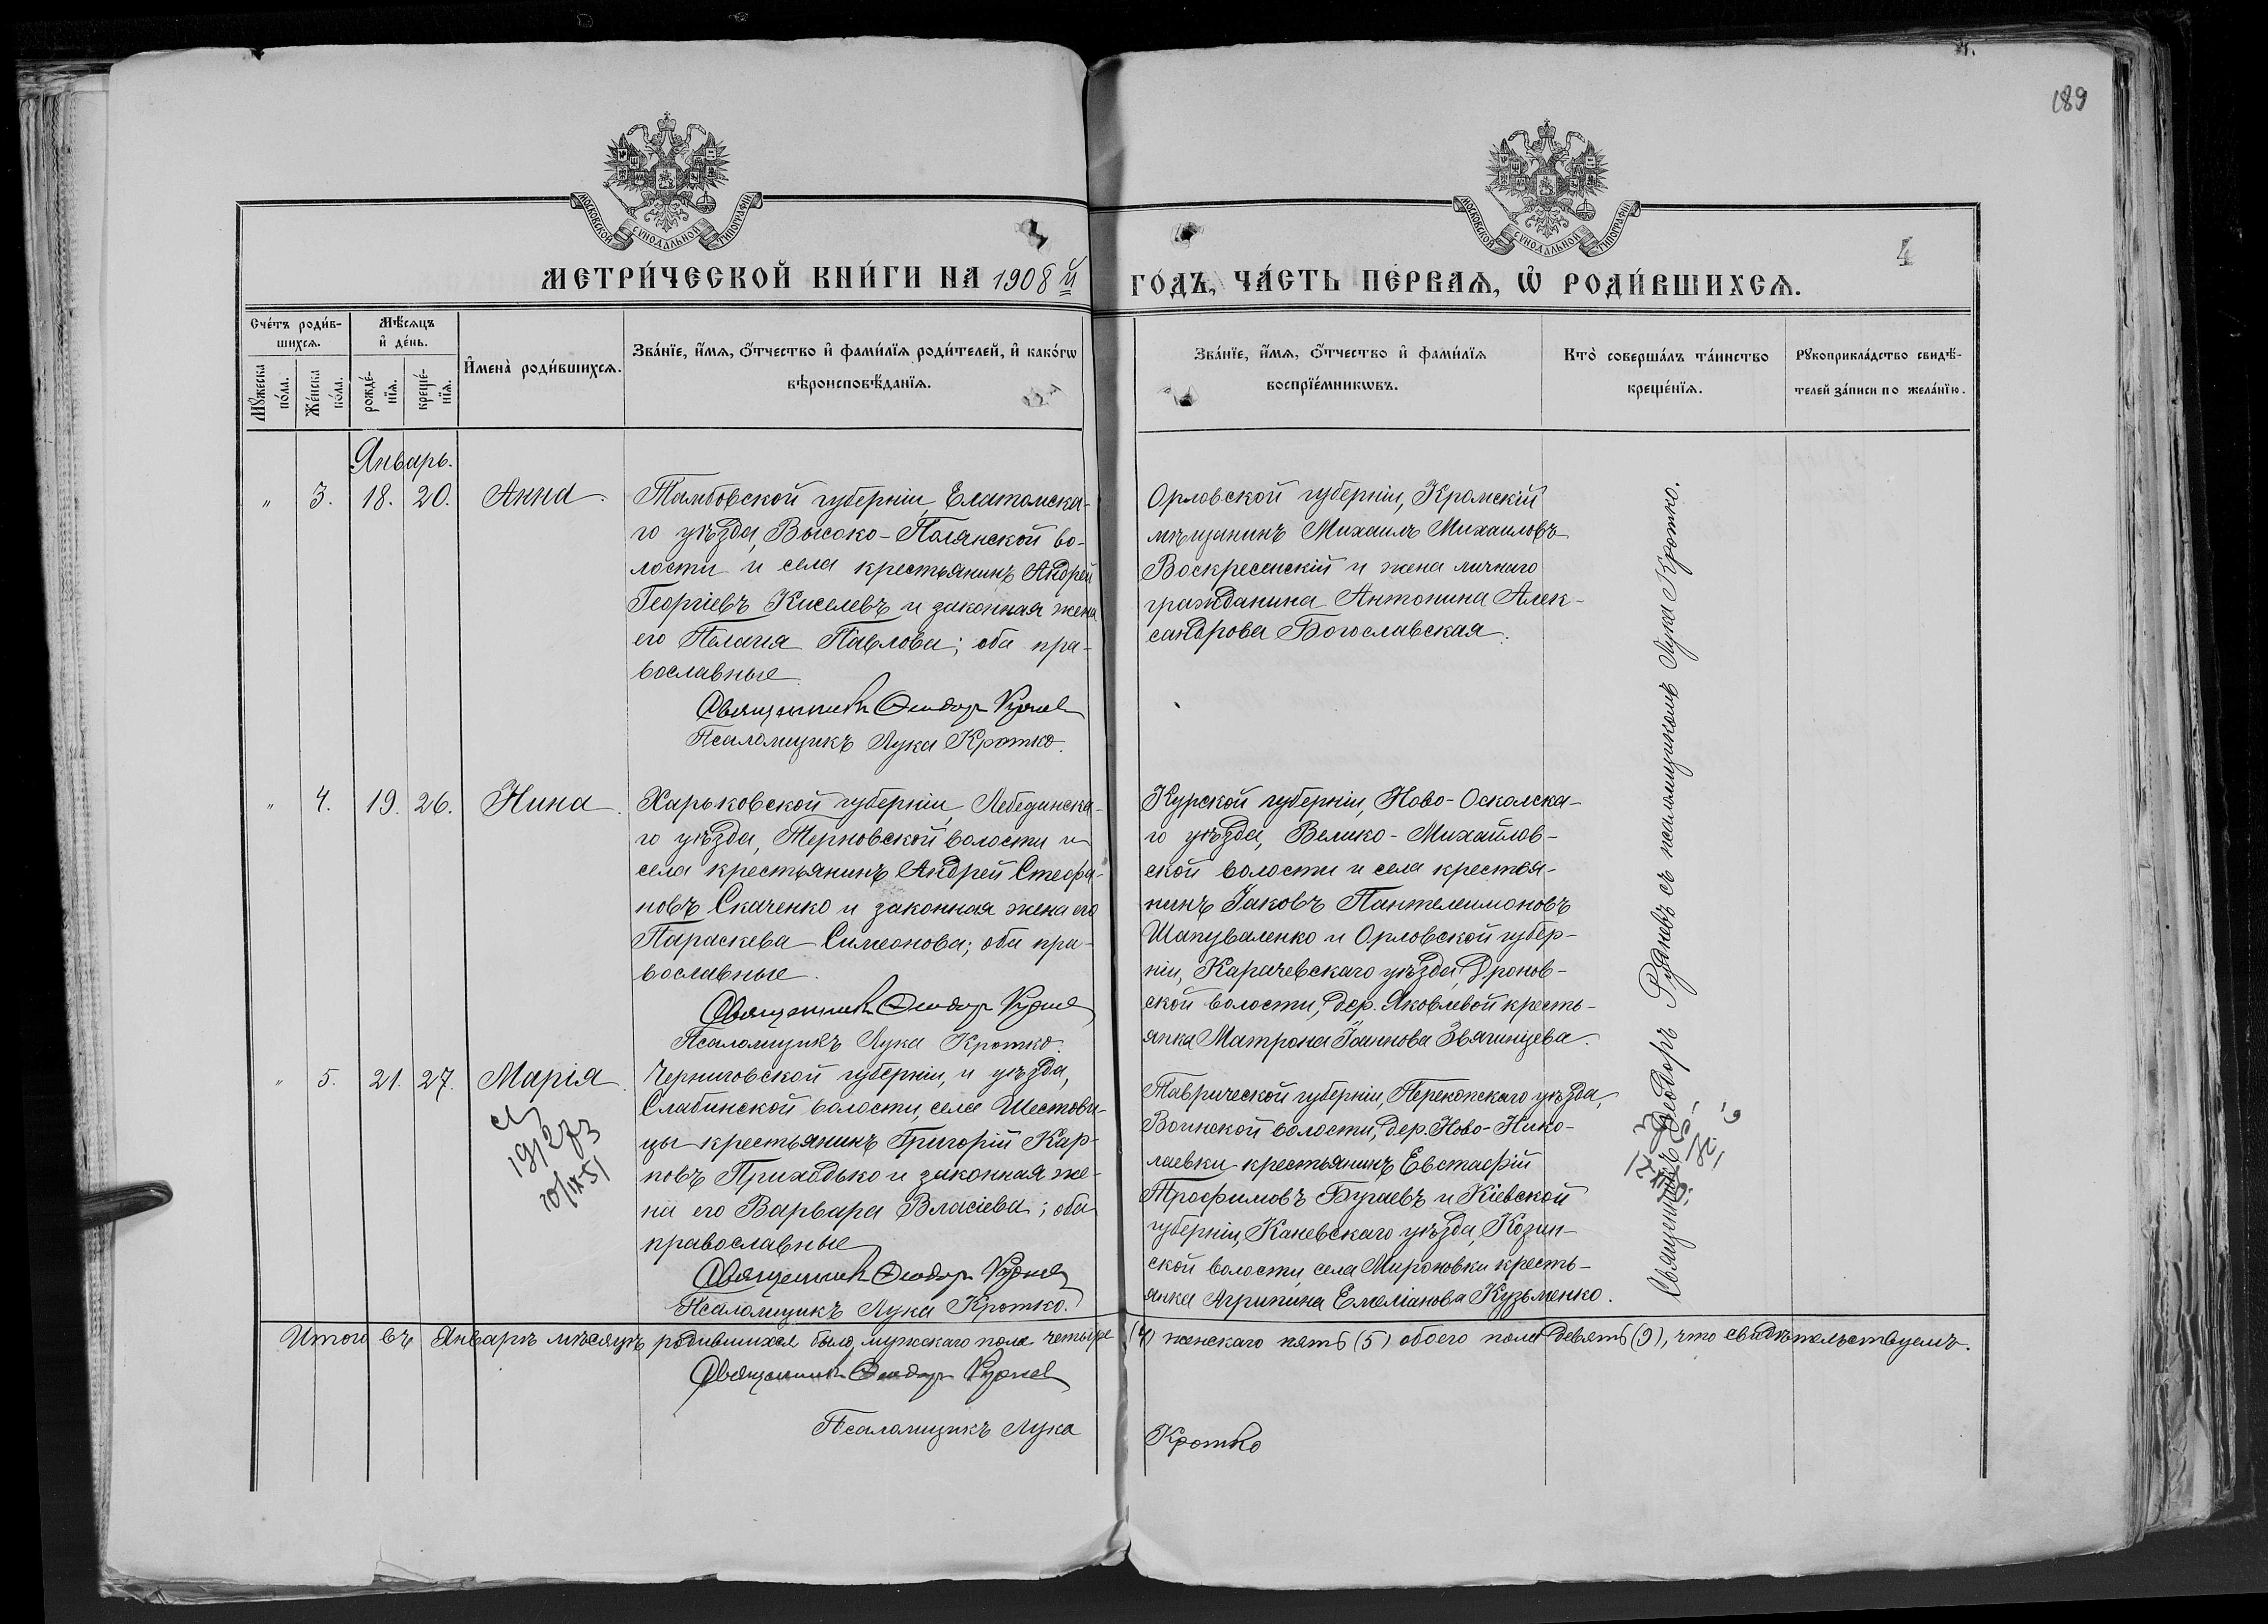 189
МОСКОВСКОЙ СѴНОДАЛЬНОЙ ТИПОГРАФІИ
МОСКОВСКОЙ СѴНОДАЛЬНОЙ ТИПОГРАФІИ
4
МЕТРИ́ЧЕСКОЙ КНИ́ГИ НА 1908й ГО́ДЪ, ЧА́СТЬ ПЕ́РВАѦ, Ѡ҆ РОДИ́ВШИХСѦ.
Сче́тъ роди́в-
шихсѧ.
Мꙋ́жеска
по́ла.
Же́нска
по́ла.
Мѣ́сѧцъ
и҆ де́нь.
рожде́-
нїѧ.
креще́-
нїѧ.
И҆мена̀ роди́вшихсѧ.
Зва́нїе, и҆́мѧ, ѻ҆́тчество и҆ фами́лїѧ роди́телей, и҆ како́гѡ
вѣроисповѣ́данїѧ.
Зва́нїе, и҆́мѧ, ѻ҆́тчество и҆ фами́лїѧ
воспрїе́мникѡвъ.
Кто̀ соверша́лъ та́инство
креще́нїѧ.
Рꙋкоприкла́дство свидѣ́-
телей за́писи по жела́нїю.
Январь.
" 3. 18. 20. Анна.
Тамбовской губерніи, Елатомска-
го уѣзда, Высоко-Полянской во-
лости и села крестьянинъ Андрей
Георгіевъ Киселевъ и законная жена
его Пелагія Павлова; оба пра-
вославные.
Священникъ Ѳеодоръ Рудневъ
Псаломщикъ Лука Кротко.
Орловской губерніи, Кромскій
мѣщанинъ Михаилъ Михаиловъ
Воскресенскій и жена личнаго
гражданина Антонина Алек-
сандрова Богославская.
" 4. 19. 26. Нина.
Харьковской губерніи, Лебединска-
го уѣзда, Терновской волости и
села крестьянинъ Андрей Стефа-
новъ Скаченко и законная жена его
Параскева Симеонова; оба пра-
вославные.
Священникъ Ѳеодоръ Рудневъ
Псаломщикъ Лука Кротко.
Курской губерніи, Ново-Осколска-
го уѣзда, Велико-Михайлов-
ской волости и села крестья-
нинъ Іаковъ Пантелеимоновъ
Шапуваленко и Орловской губер-
ніи, Карачевскаго уѣзда, Дронов-
ской волости, дер. Яковлевой кресть-
янка Матрона Іоаннова Звягинцева.
" 5. 21. 27. Марія.
Черниговской губерніи, и уѣзда,
Слабинской волости, села Шестови-
цы крестьянинъ Григорій Кар-
повъ Приходько и законная же-
на его Варвара Власіева; оба
православные
Священникъ Ѳеодоръ Рудневъ
Псаломщикъ Лука Кротко.
Таврической губерніи, Перекопскаго уѣзда,
Воинской волости, дер. Ново-Нико-
лаевки крестьянинъ Евстафій
Трофимовъ Бугаевъ и Кіевской
губерніи, Каневскаго уѣзда, Козин-
ской волости, села Мироновки кресть-
янка Агрипина Емеліанова Кузьменко.
Священникъ Ѳеодоръ Рудневъ съ псаломщикомъ Лука Кротко.
Итого въ Январѣ мѣсяцѣ родившихся было, мужскаго пола четыре (4) женскаго пять (5) обоего пола девять (9), что свидѣтельствуемъ.
Священникъ Ѳеодоръ Рудневъ
Псаломщикъ Лука Кротко